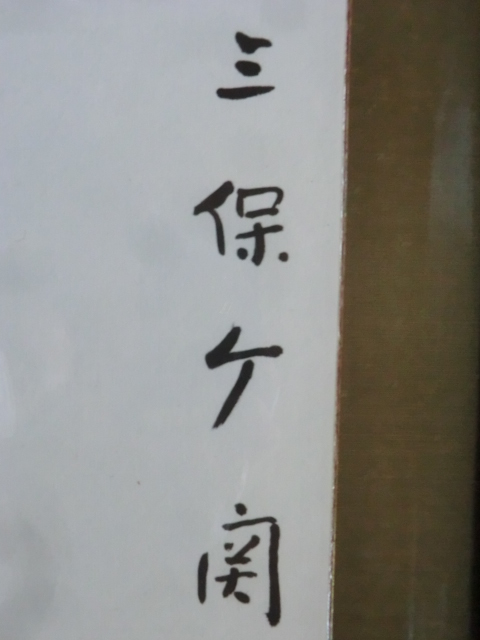 三保ケ関